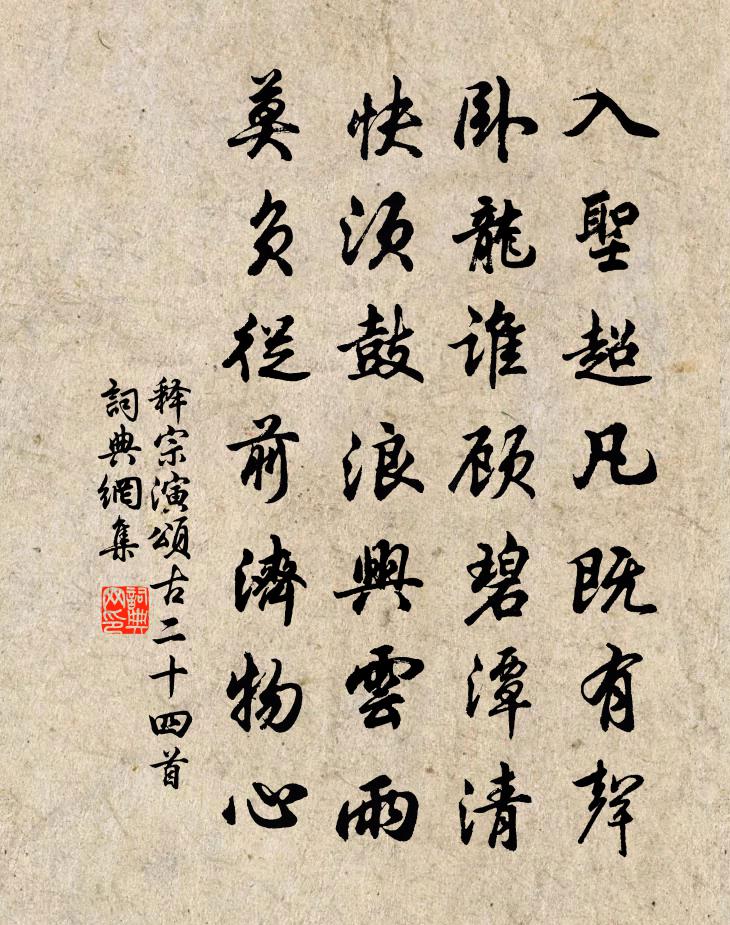 入聖超凡既有聲
卧龍誰顧碧潭清
快須鼓浪興雲雨
莫負從前濟物心
释宗演頌古二十四首
詞典網集
詞典
网印